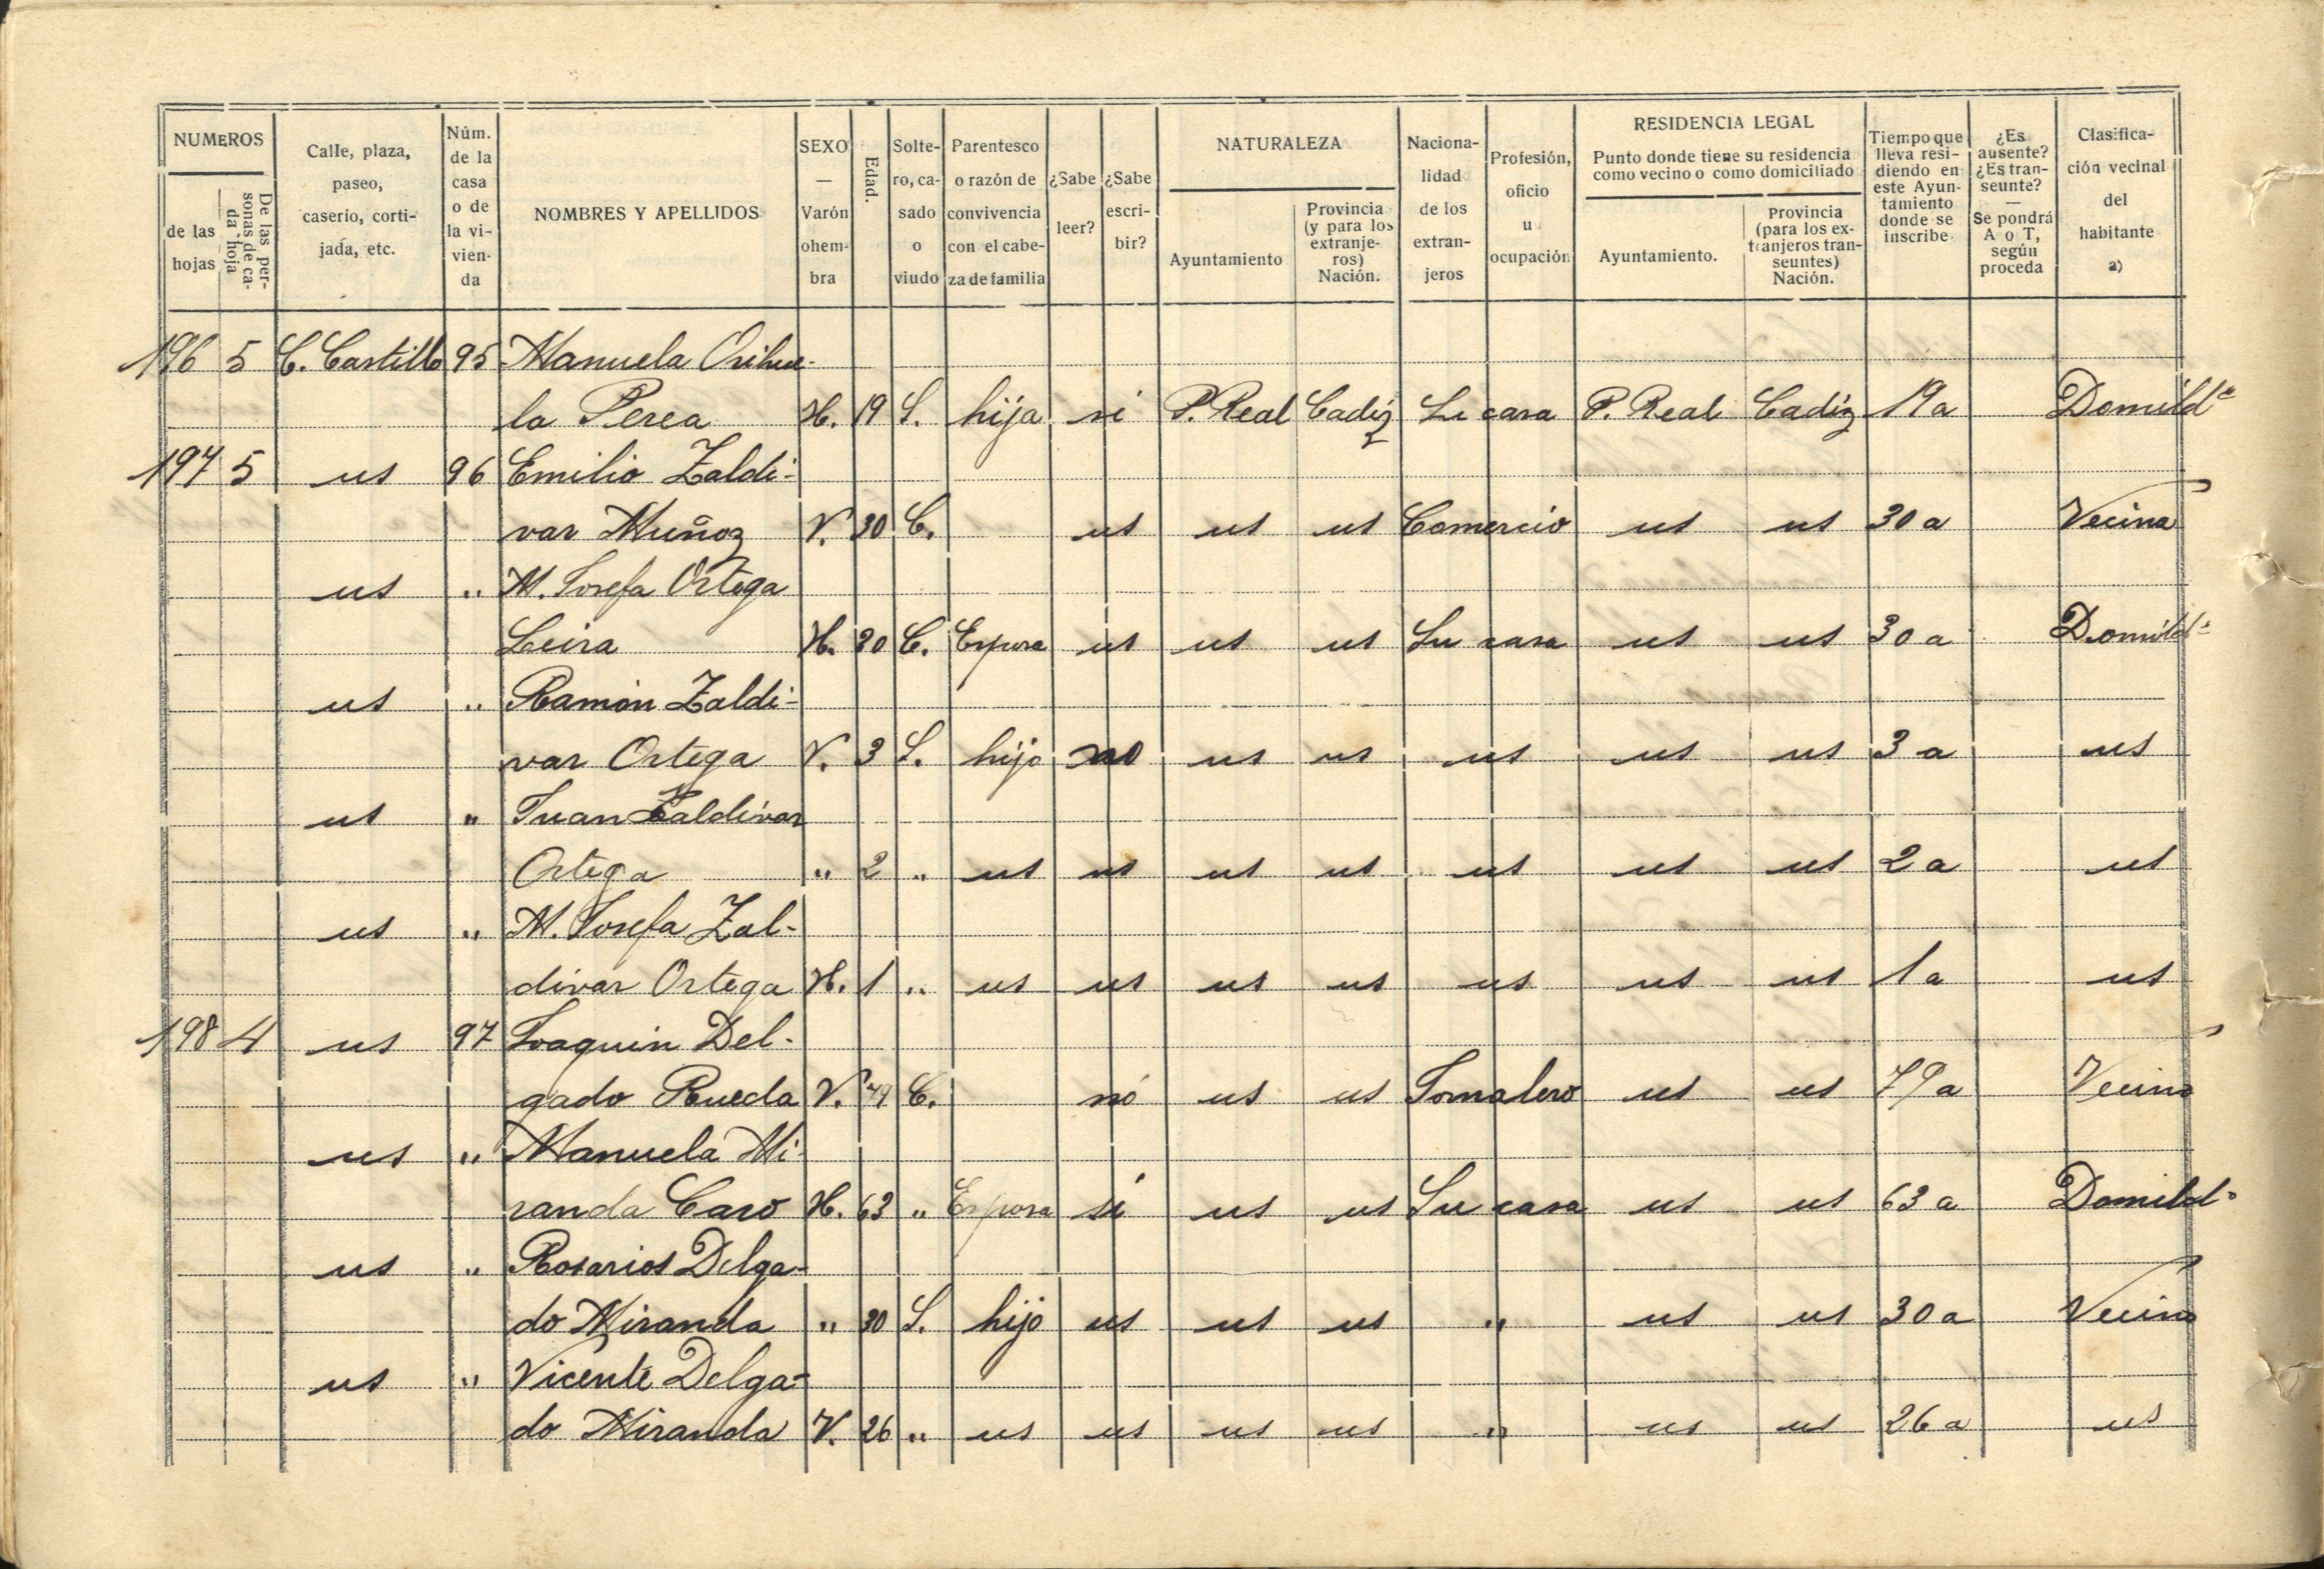 NUMEROS
de las hojas
De las personas de cada hoja
Calle, plaza, paseo, caserío, cortijada, etc.
Núm. de la casa o de la vivienda
NOMBRES Y APELLIDOS
SEXO — Varón ohembra
Edad.
Soltero, casado o viudo
Parentesco o razón de convivencia con el cabeza de familia
¿Sabe leer?
¿Sabe escribir?
NATURALEZA
Ayuntamiento
Provincia (y para los extranjeros) Nación.
Nacionalidad de los extranjeros
Profesión, oficio u ocupación
RESIDENCIA LEGAL
Punto donde tiene su residencia como vecino o como domiciliado
Ayuntamiento.
Provincia (para los extranjeros transeuntes) Nación.
Tiempo que lleva residiendo en este Ayuntamiento donde se inscribe
¿Es ausente? ¿Es transeunte? — Se pondrá A o T, según proceda
Clasificación vecinal del habitante a)
196 5 C. Castillo 95 Manuela Orihue-
la Perea H. 19 S. hija si P. Real Cadiz Su casa P. Real Cadiz 19 a Domild
197 5 us 96 Emilio Zaldi-
var Muñoz V. 30 C. us us us Comercio us us 30 a Vecino
us " M. Josefa Ortega
Leira H. 30 C. Esposa us us us Su casa us us 30 a Domild
us " Ramón Zaldi-
var Ortega V. 3 S. hijo no us us us us us 3 a us
us " Juan Zaldivar
Ortega " 2 " us us us us us us us 2 a us
us " M. Josefa Zal-
divar Ortega H. 1 " us us us us us us us 1 a us
198 4 us 97 Joaquin Del-
gado Rueda V. 79 C. nó us us Jornalero us us 79 a Vecino
us " Manuela Mi-
randa Caro H. 63 " Esposa si us us Su casa us us 63 a Domild
us " Rosarios Delga-
do Miranda " 30 S. hijo us us us " us us 30 a Vecino
us " Vicente Delga-
do Miranda V. 26 " us us us us " us us 26 a us